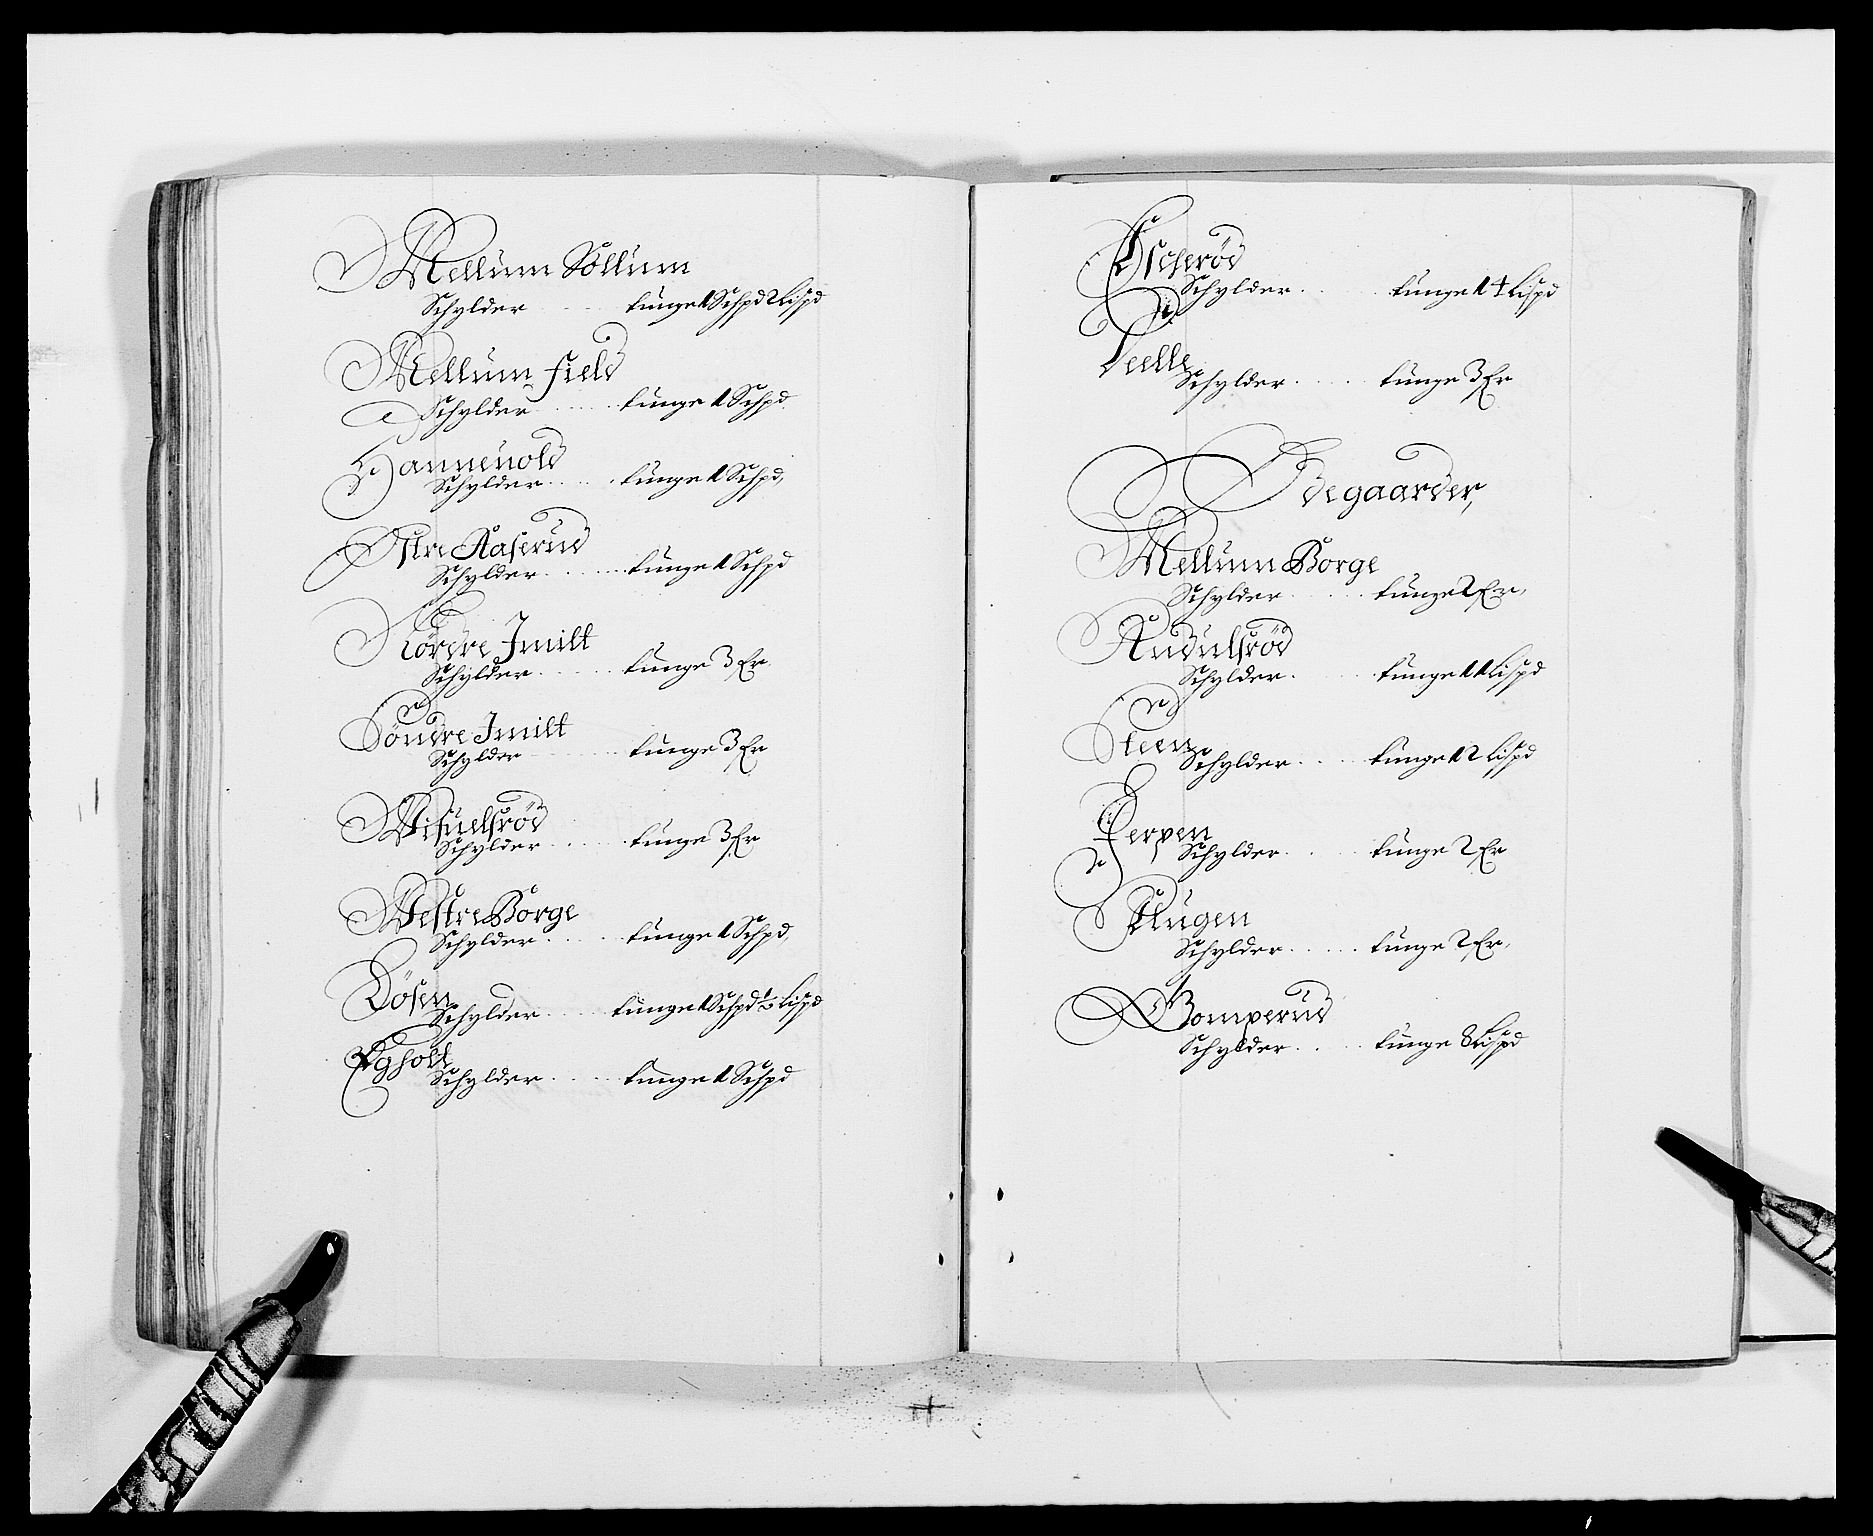 Mellum Sollum
Schylder . . . . tunge 1 Schpd 2 Lispd
Mellum field
Schylder . . . . tunge 1 Schpd
Hannevold
Schylder . . . . tunge 1 Schpd,
Østre Aaserud
Schylder . . . . tunge 1 Schpd
Nørdre Jmilt
Schylder . . . . tunge 3 Er
Søndre Jmilt
Schylder . . . . tunge 3 Er
Wifuelsrød
Schylder . . . . tunge 3 Er
Westre Borge
Schylder . . . . tunge 1 Schpd,
Døsen
Schylder . . . . tunge 1 Schpd ½ Lispd
Egholt
Schylder . . . . tunge 1 Schpd
Escherød
Schylder . . . . tunge 14 Lispd
Teelle
Schylder . . . . tunge 3 Er
Ødegaarder,
Mellum Borge
Schylder . . . . tunge 2 Er,
Audulsrød
Schylder . . . . tunge 11 Lispd
Steen
Schylder . . . . tunge 12 Lispd
Jerpen
Schylder . . . . tunge 2 Er
Haugen
Schylder . . . . tunge 2 Er,
Gomperud
Schylder . . . . tunge 8 Lispd